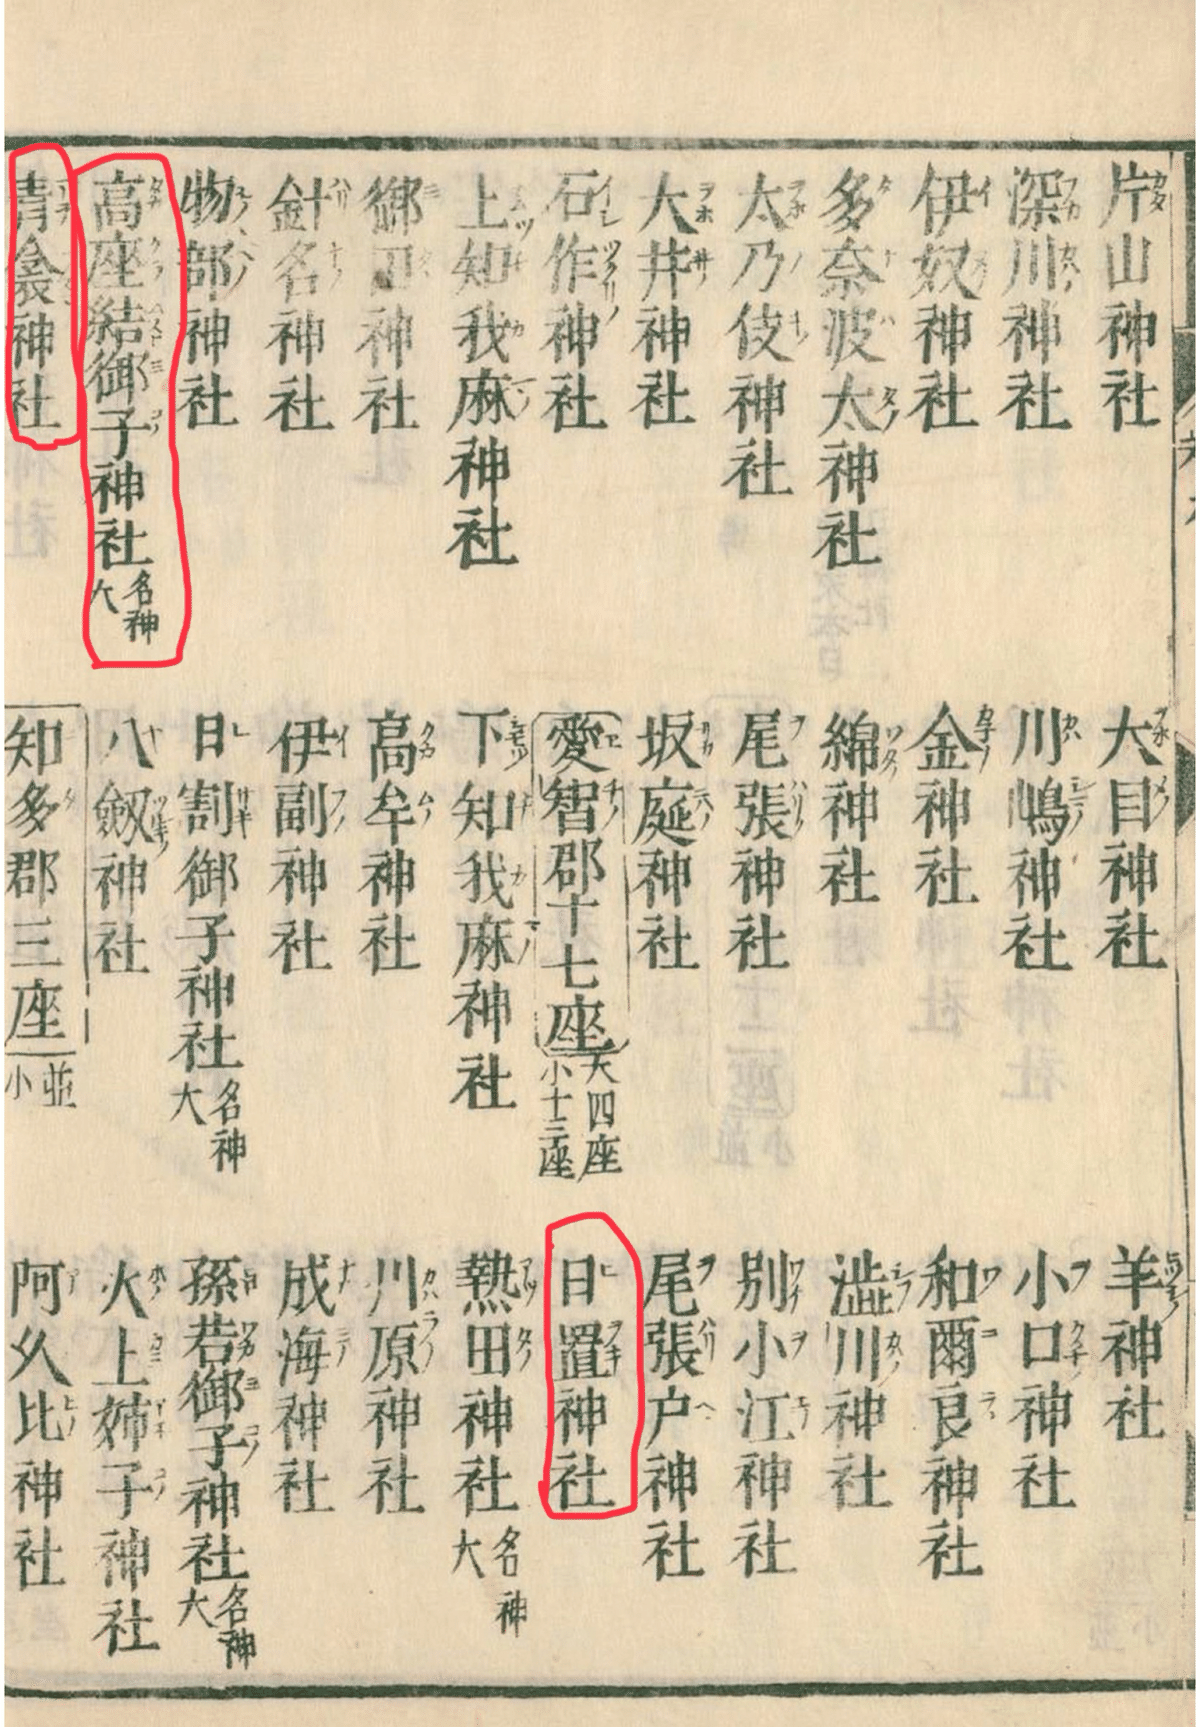 片山神社
大目神社
羊神社
深川神社
川嶋神社
小口神社
伊奴神社
金神社
和爾良神社
多奈波太神社
綿神社
澁川神社
太乃伎神社
尾張神社
別小江神社
大井神社
坂庭神社
尾張戸神社
石作神社
愛智郡十七座 大四座 小十三座
日置神社
上知我麻神社
下知我麻神社
熱田神社 名神大
御田神社
高牟神社
川原神社
針名神社
伊副神社
成海神社
物部神社
日割御子神社 名神大
孫若御子神社 名神大
高座結御子神社 名神大
八劔神社
火上姉子神社
青衾神社
知多郡三座 並小
阿久比神社